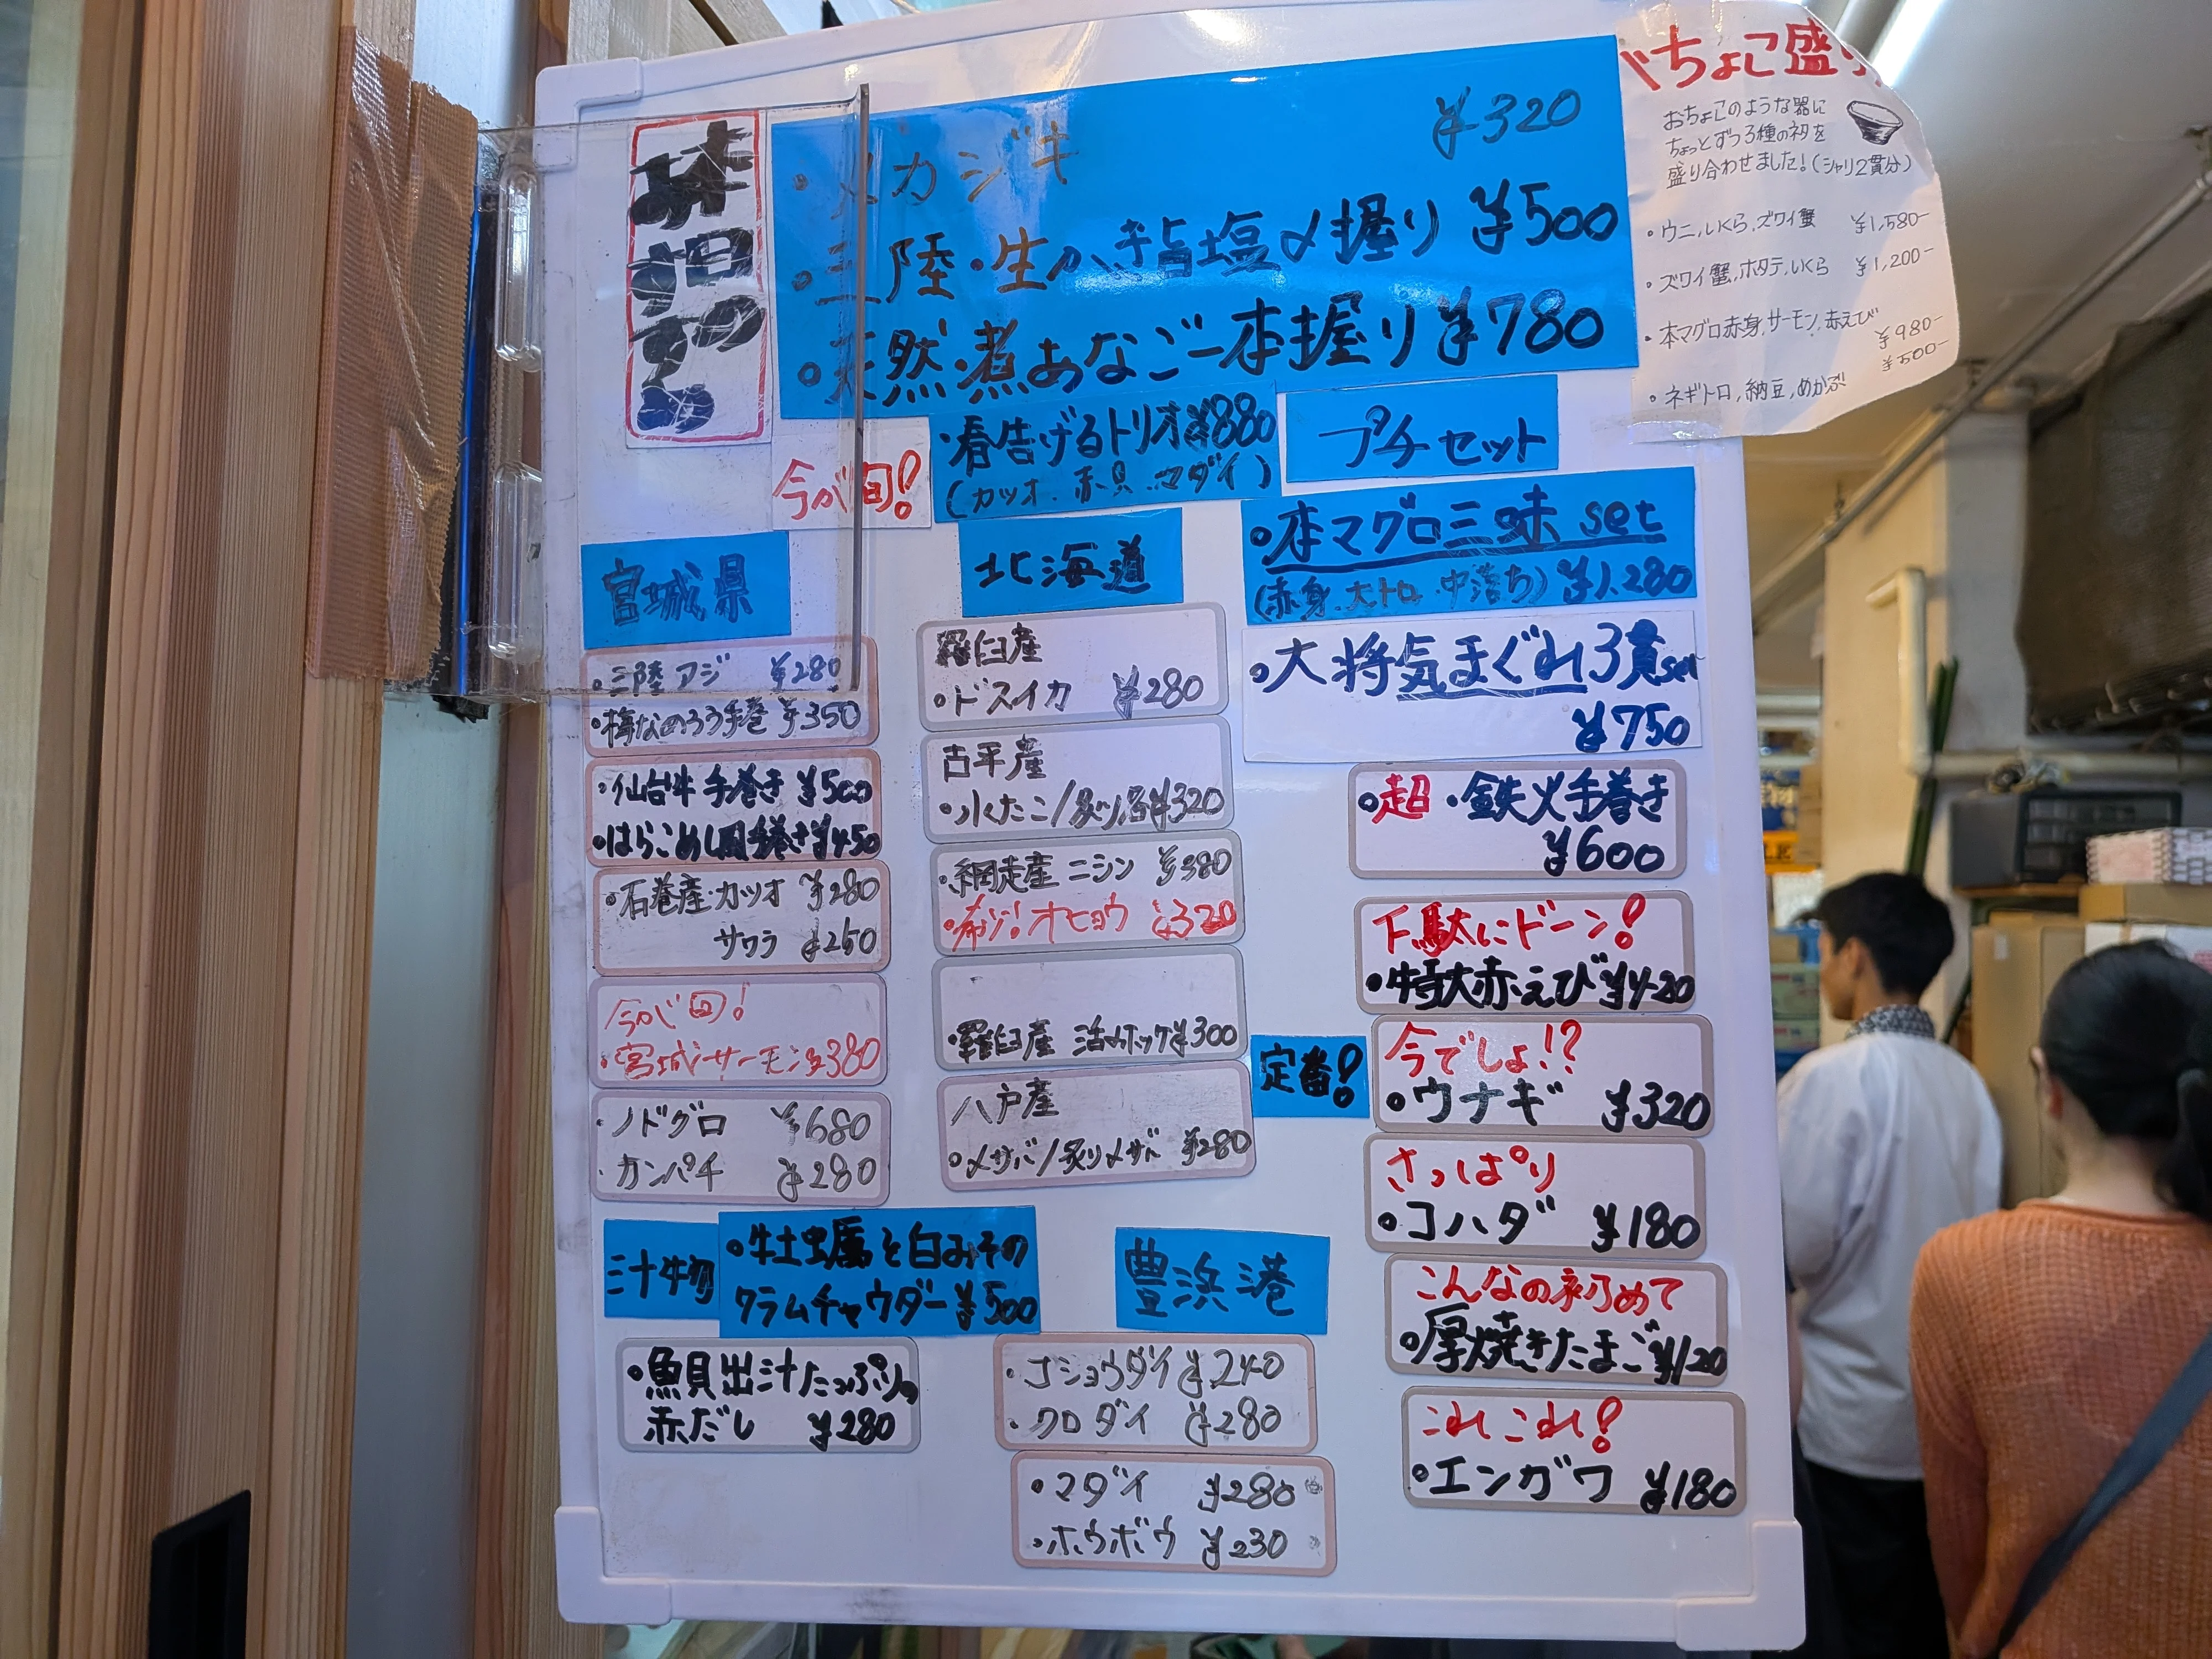 本日のおすすめ
・メカジキ ¥320
・三陸・生かき旨塩〆握り ¥500
・天然・煮あなご一本握り ¥780
ちょこ盛り
おちょこのような器に
ちょっとずつ3種のネタを
盛り合わせました!(シャリ2貫分)
・ウニ,いくら,ズワイ蟹 ¥1,580-
・ズワイ蟹,ホタテ,いくら ¥1,200-
・本マグロ赤身,サーモン,赤えび ¥980-
・ネギトロ,納豆,めかぶ ¥500-
今が旬!
・春告げるトリオ¥880
(カツオ.赤貝.マダイ)
プチセット
・本マグロ三昧set
(赤身.大トロ.中落ち) ¥1.280
・大将気まぐれ3貫set
¥750
宮城県
・三陸アジ ¥280
・梅なめろう手巻 ¥350
・仙台牛手巻き ¥500
・はらこめし風手巻き¥450
・石巻産・カツオ ¥280
サワラ ¥250
今が旬!
・宮城サーモン¥380
・ノドグロ ¥680
・カンパチ ¥280
北海道
羅臼産
・ドスイカ ¥280
古平産
・水たこ/炙り沼¥320
・網走産 ニシン ¥380
・希少!オヒョウ ¥320
・羅臼産 活〆ホッケ¥300
八戸産
・〆サバ/炙り〆サバ ¥280
・超・鉄火手巻き
¥600
下駄にドーン!
・特大赤えび¥420
定番!
今でしょ!?
・ウナギ ¥320
さっぱり
・コハダ ¥180
こんなの初めて
・厚焼きたまご¥120
これこれ!
・エンガワ ¥180
汁物
・牡蠣と白みその
クラムチャウダー¥500
・魚貝出汁たっぷり。
赤だし ¥280
豊浜港
・コショウダイ¥240
・クロダイ ¥280
・マダイ ¥280
・ホウボウ ¥230